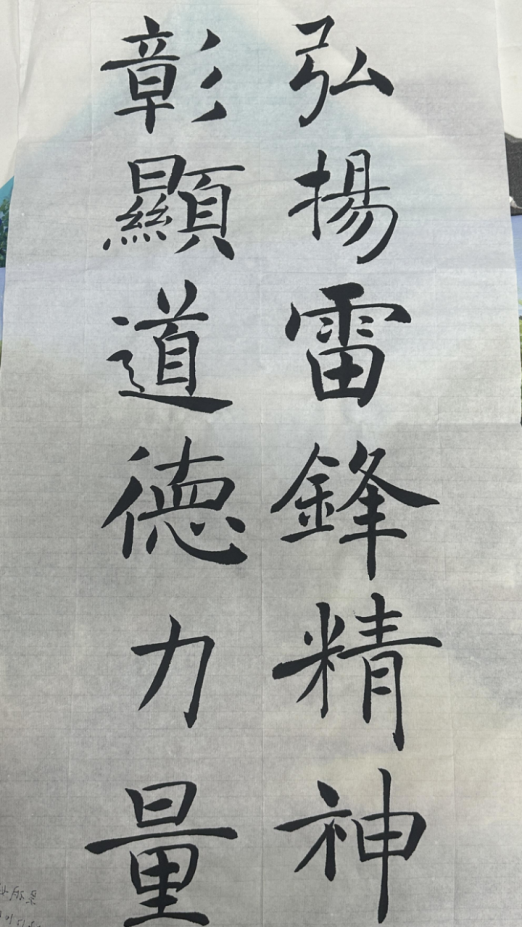 弘揚雷鋒精神
彰顯道德力量